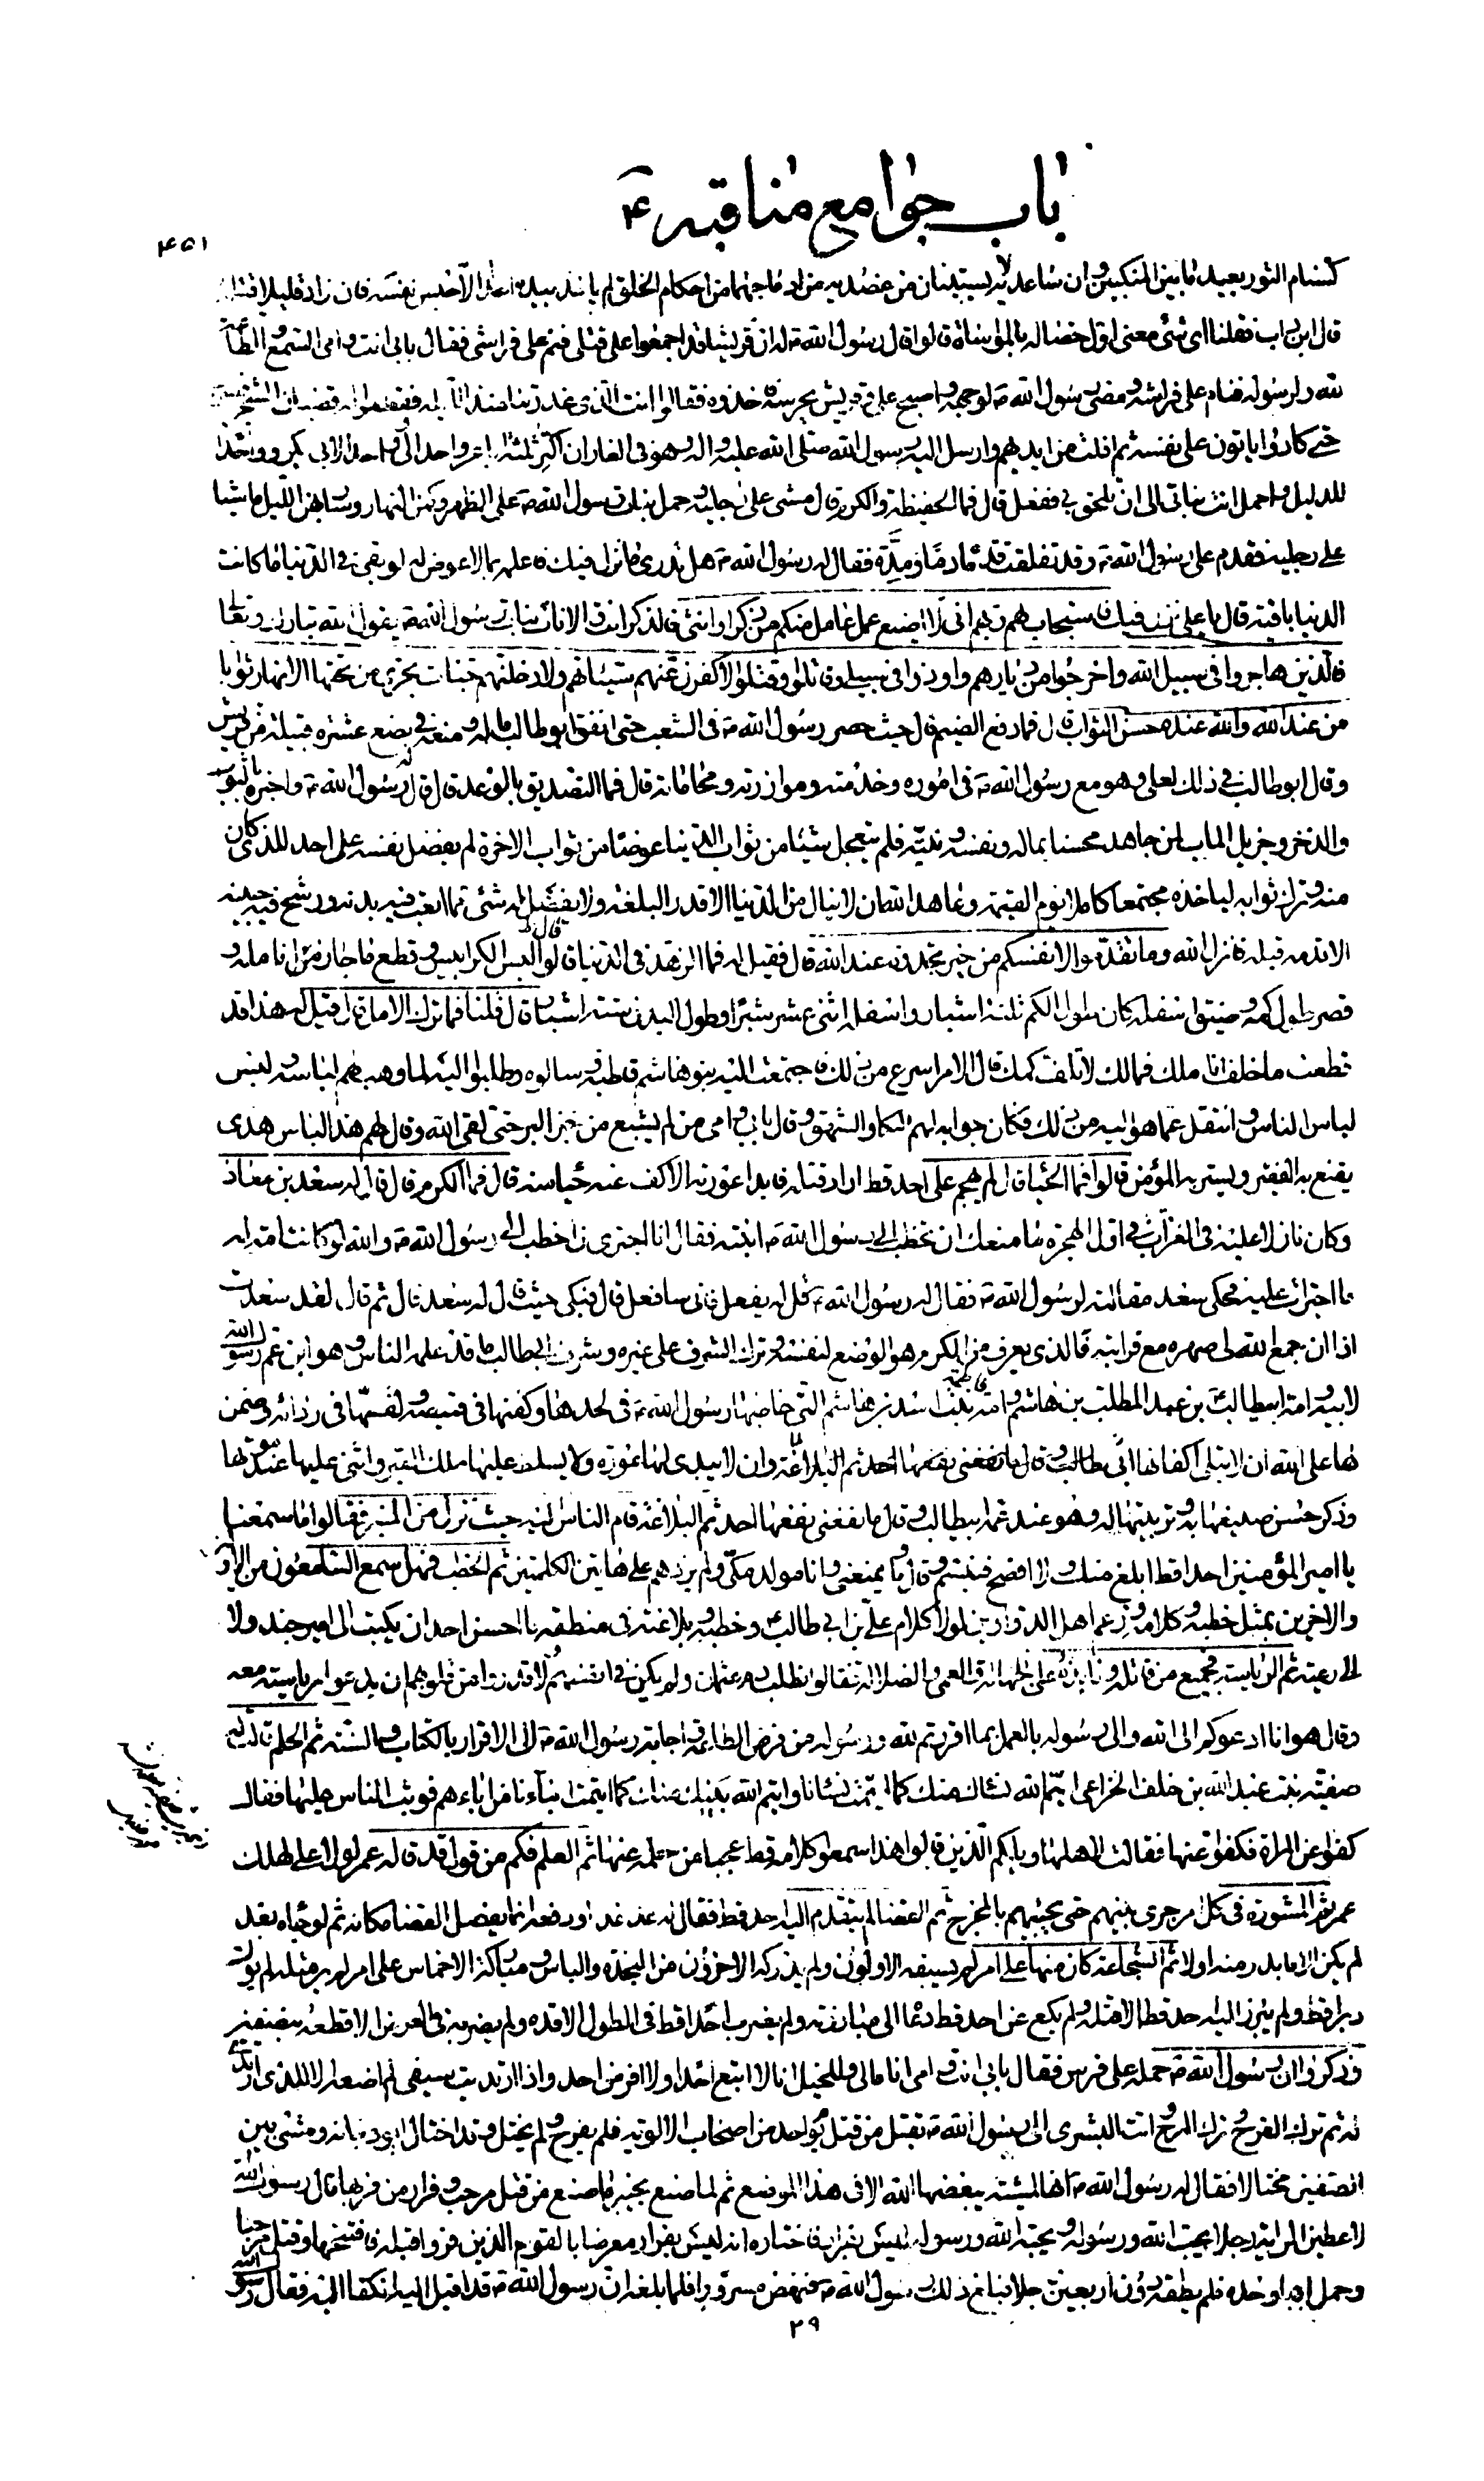 باب جوامع مناقبه ع
٤٥١
كسنام الثور بعيد ما بين المنكبين وان ساعديه لا يستبينان من عضديه من ادماجهما من احكام الخلق لم ياخذ بيده احدا الا حبس نفسه فان زاد قليلا قتله
قال ابن داب فقلنا اى شئ معنى اول خصاله بالمواساة قالوا قال رسول الله ص له ان قريشا قد اجمعوا على قتلى فنم على فراشى فقال بابى انت وامى السمع والطاعة
لله ولرسوله فنام على فراشه ومضى رسول الله ص لوجهه واصبح على وقريش يحرسه فاخذوه فقالوا انت الذى غدرتنا منذ الليلة فقطعوا له قضبان الشجر فضرب
حتى كادوا ياتون على نفسه ثم افلت من ايديهم وارسل اليه رسول الله صلى الله عليه واله وهو فى الغار ان اكتر ثلثة اباعر واحدا لى وواحدا لابى بكر وواحدا
للدليل واحمل انت بناتى الى ان تلحق بى ففعل قال فما الحفيظة والكرم قال مشى على رجليه وحمل بنات رسول الله ص على الظهر وكمن النهار وسار بهن الليل ماشيا
على رجليه فقدم على رسول الله ص وقد تفلقت قدماه دما ومدة فقال له رسول الله ص هل تدرى ما نزل فيك فاعلمه بما لا عوض له لو بقى فى الدنيا ما كانت
الدنيا باقية قال يا على نزل فيك فاستجاب لهم ربهم انى لا اضيع عمل عامل منكم من ذكر او انثى فالذكر انت والاناث بنات رسول الله ص يقول الله تبارك وتعالى
فالذين هاجروا فى سبيل الله واخرجوا من ديارهم واوذوا فى سبيلى وقاتلوا وقتلوا لاكفرن عنهم سيئاتهم ولادخلنهم جنات تجرى من تحتها الانهار ثوابا
من عند الله والله عنده حسن الثواب قال فما دفع الضيم قال حيث حصر رسول الله ص فى الشعب حتى انفق ابو طالب ماله ومنعه فى بضع عشرة قبيلة من قريش
وقال ابو طالب فى ذلك لعلى وهو مع رسول الله ص فى اموره وخدمته وموازرته ومحاماته قال فما التصديق بالوعد قال قال له رسول الله ص واخبره بالثواب
والذخر وجزيل الماب لمن جاهد محسنا بماله ونفسه ونيته فلم يتعجل شيئا من ثواب الدنيا عوضا من ثواب الاخرة لم يفضل نفسه على احد للذى كان
منه وترك ثوابه لياخذه مجتمعا كاملا يوم القيمة وعاهد الله ان لا ينال من الدنيا الا قدر البلغة ولا يفضل له شئ مما اتعب فيه بدنه ورشح فيه جبينه
الا قدمه قبله فانزل الله وما تقدموا لانفسكم من خير تجدوه عند الله قال فقيل له فما الزهد فى الدنيا قالوا لبس الكرابيس وقطع ما جاز من انامله و
قصر طول كمه وضيق اسفله كان طول الكم ثلثة اشبار واسفله اثنى عشر شبرا وطول البدن ستة اشبار قال قلنا فما ترك الامل قال قيل له هذا قد
قطعت ما خلف انا ملك فمالك لا تلف كمك قال الامر اسرع من ذلك فاجتمعت اليه بنو هاشم قاطبة وسالوه وطلبوا اليه لما وهب لهم لباسه ولبس
لباس الناس وانتقل عما هو اليه من ذلك فكان جوابه لهم البكاء والشهق وقال بابى وامى من لم يشبع من خبز البر حتى لقى الله وقال لهم هذا لباس هدى
يقنع به الفقير ويستر به المؤمن قالوا فما الحياء قال لم يهجم على احد قط اراد قتله فابدا عورته الا كف عنه حياء منه قال فما الكرم قال قال له سعد بن معاذ
وكان نازلا عليه فى العزاب فى اول الهجرة ما منعك ان تخطب الى رسول الله ص ابنته فقال انا اجترى ان اخطب الى رسول الله ص والله لو كانت امة له
ما اجترات عليه فحكى سعد مقالته لرسول الله ص فقال له رسول الله ص قل له يفعل فانى سافعل قال فبكى حيث قال له سعد قال ثم قال لقد سعدت
اذا ان جمع الله لى صهره مع قرابته فالذى يعرف من الكرم هو الوضع لنفسه وترك الشرف على غيره وشرف ابى طالب ما قد علمه الناس وهو ابن عم رسول الله
لابيه وامه ابو طالب بن عبد المطلب بن هاشم وامه فاطمة بنت اسد بن هاشم التى خاطبها رسول الله ص فى لحدها وكفنها فى قميصه ولفها فى ردائه وضمن
لها على الله ان لا تبلى اكفانها
وذكر حسن صنيعها به وتربيتها له وهو عند عمه ابيطالب وقال ما نفعنى نفعها احد ثم البلاغة قام الناس اليه حيث نزل من المنبر فقالوا ما سمعنا
يا امير المؤمنين احدا قط ابلغ منك ولا افصح فتبسم وقال وما يمنعنى وانا مولد مكى ولم يزدهم على هاتين الكلمتين ثم الخطب فهل سمع السامعون من الاولين
والاخرين بمثل خطبه وكلامه وزعم اهل الدواوين لولا كلام على بن ابى طالب ع وخطبه وبلاغته فى منطقه ما احسن احد ان يكتب الى امير جند ولا
الى رعية ثم الرياسة فجميع من قاتله ونابذه على الجهالة والعمى والضلالة فقالوا نطلب دم عثمان ولم يكن فى انفسهم ولا قدروا من قلوبهم ان يدعوا رياسته معه
وقال هو انا ادعوكم الى الله والى رسوله بالعمل بما اقررتم لله ورسوله من فرض الطاعة واجابة رسول الله ص الى الاقرار بالكتاب والسنة ثم الحلم قالت له
صفية بنت عبد الله بن خلف الخزاعى ايم الله نساءك منك كما ايتمت نساءنا وايتم الله بنيك منك كما ايتمت ابناءنا من اباءهم فوثب الناس عليها فقال
كفوا عن المراة فكفوا عنها فقالت لاهلها ويلكم الذين قالوا هذا سمعوا كلامه قط عجبا من حلمه عنها ثم العلم فكم من قول قد قاله عمر لولا على لهلك
عمر ثم المشورة فى كل امر جرى بينهم حتى يجيئهم بالمخرج ثم القضاء لم يتقدم اليه احد قط فقال له عد غدا او دفعه انما يفصل القضاء مكانه ثم لو جاءه بعد
لم يكن الا ما بدر منه اولا ثم الشجاعة كان منها على امر لم يسبقه الاولون ولم يدركه الاخرون من النجدة والباس ومباركة الاخماس على امر لم ير مثله لم يول
دبرا قط ولم يبرز اليه احد قط الا قتله ولم يكع عن احد قط دعا الى مبارزته ولم يضرب احدا قط فى الطول الا قده ولم يضربه فى العرض الا قطعه بنصفين
وذكروا ان رسول الله ص حمله على فرس فقال بابى انت وامى انا مالى وللخيل انا لا اتبع احدا ولا افر من احد واذا ارتديت سيفى لم اضعه الا للذى ارتدى
له ثم ترك الفرح وترك المرح اتت البشرى الى رسول الله ص بقتل من قتل يوم احد من اصحاب الالوية فلم يفرح ولم يختل وقد اختال ابو دجانة ومشى بين
الصفين مختالا فقال له رسول الله ص انها لمشية يبغضها الله الا فى هذا الموضع ثم لما صنع بخيبر ما صنع من قتل مرحب وفرار من فر بها قال رسول الله
لاعطين الراية رجلا يحب الله ورسوله ويحبه الله ورسوله ليس بفرار فاختاره انه ليس بفرار معرضا بالقوم الذين فروا قبله فافتتحها وقتل مرحبا
وحمل بابها وحده فلم يطقه دون اربعين رجلا فبلغ ذلك رسول الله ص فنهض مسرورا فلما بلغه ان رسول الله ص قد اقبل اليه انكفا اليه فقال رسول الله
٢٩